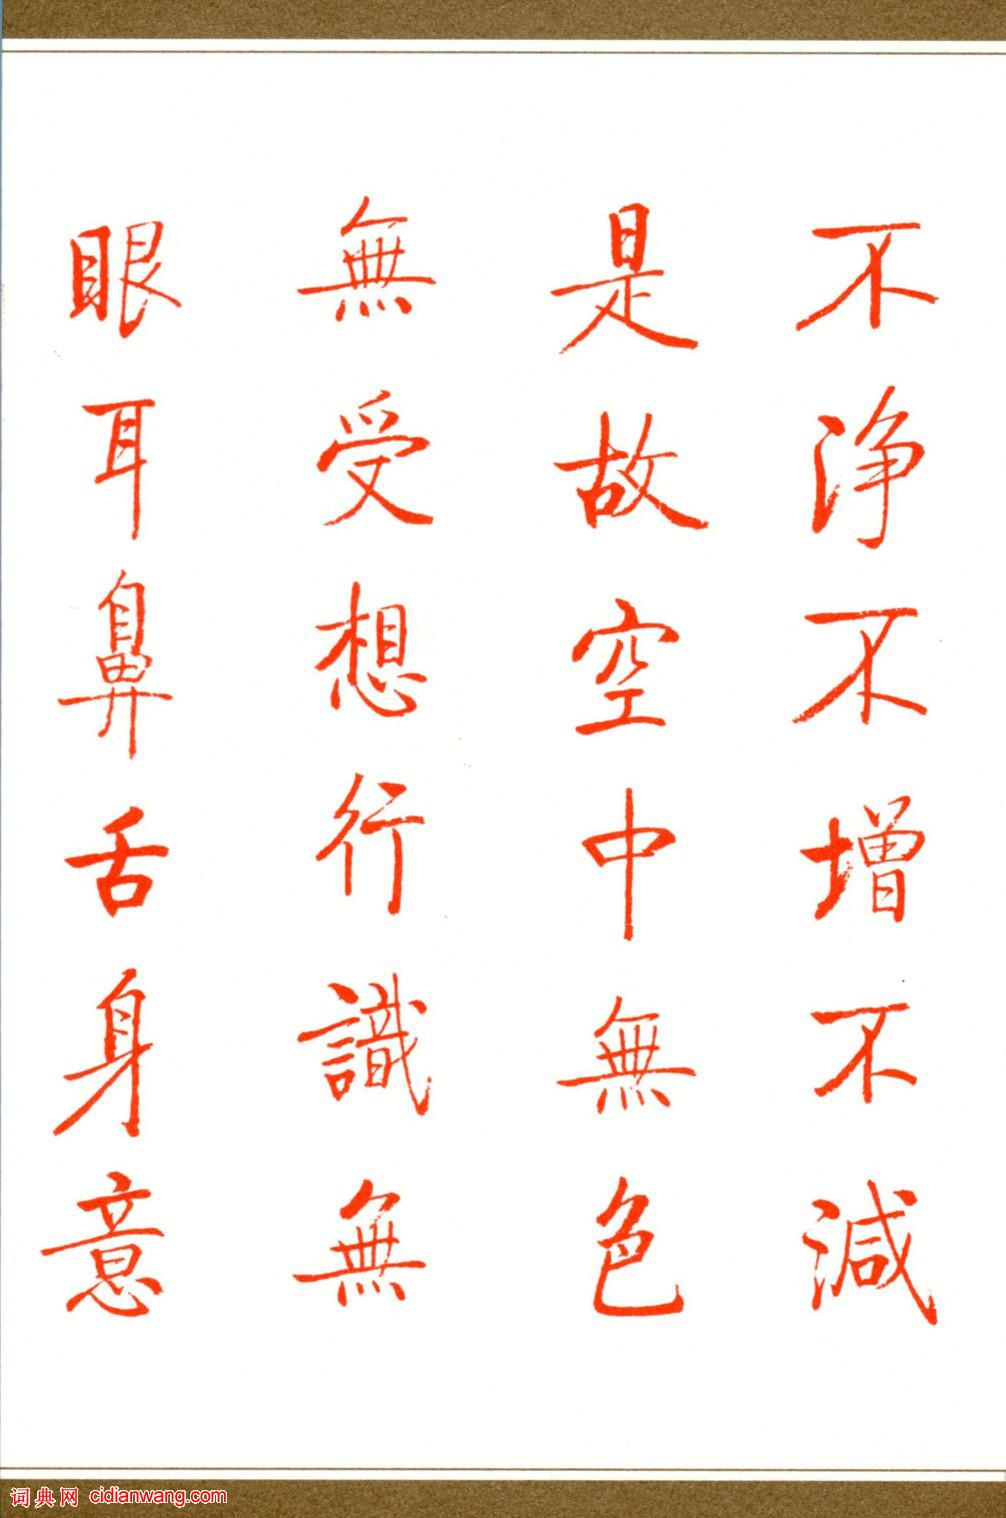 不浄不增不減
是故空中無色
無受想行識無
眼耳鼻舌身意
词典网 cidianwang.com